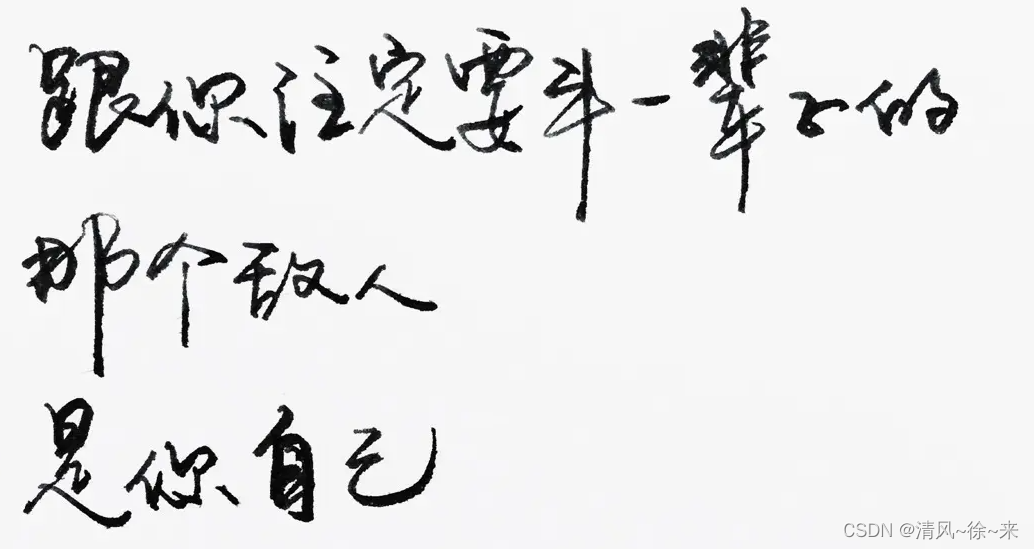 跟你注定要斗一辈子的
那个敌人
是你自己
CSDN @清风~徐~来